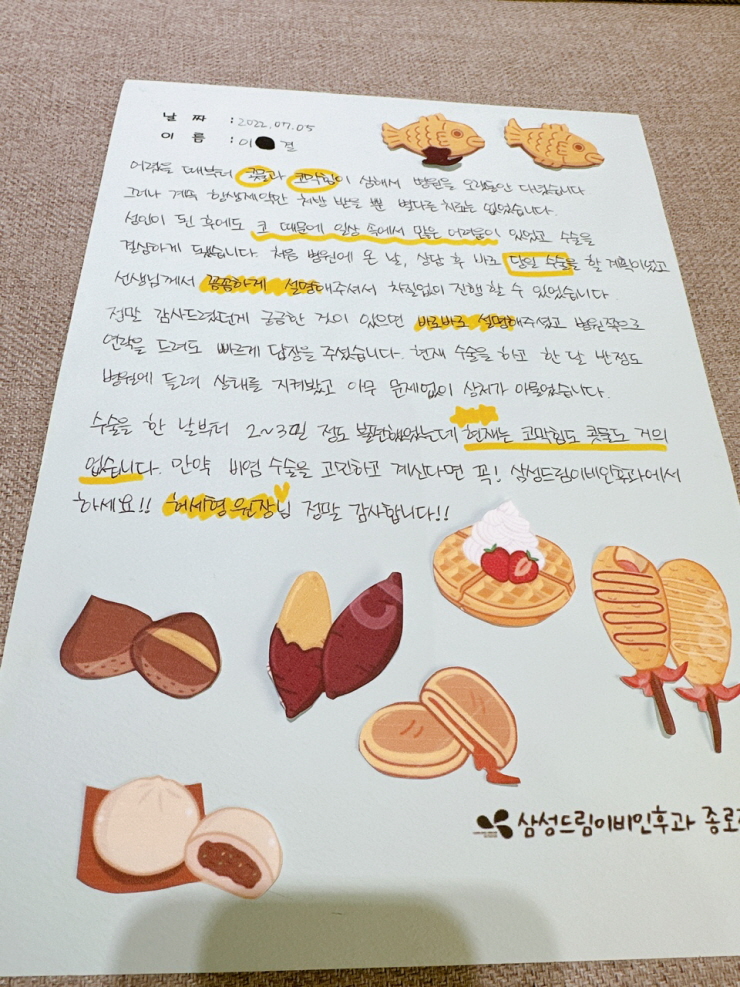 날 짜 : 2022.07.05
이 름 : 이 결
어렸을 때부터 콧물과 코막힘이 심해서 병원을 오랫동안 다녔습니다
그러나 계속 항생제약만 처방 받을 뿐 별다른 치료는 없었습니다.
성인이 된 후에도 코 때문에 일상 속에서 많은 어려움이 있었고 수술을
결심하게 됐습니다. 처음 병원에 온 날, 상담 후 바로 당일 수술을 할 계획이었고
선생님께서 꼼꼼하게 설명해주셔서 차질없이 진행 할 수 있었습니다.
정말 감사드렸던게 궁금한 것이 있으면 바로바로 설명해주셨고 병원쪽으로
연락을 드려도 빠르게 답장을 주셨습니다. 현재 수술을 하고 한 달 반정도
병원에 들려 상태를 지켜봤고 아무 문제없이 상처가 아물었습니다.
수술을 한 날부터 2~3일 정도 불편했었는데 현재는 코막힘도 콧물도 거의
없습니다. 만약 비염 수술을 고민하고 계신다면 꼭! 삼성드림이비인후과에서
하세요!! 허세형 원장님 정말 감사합니다!!
삼성드림이비인후과